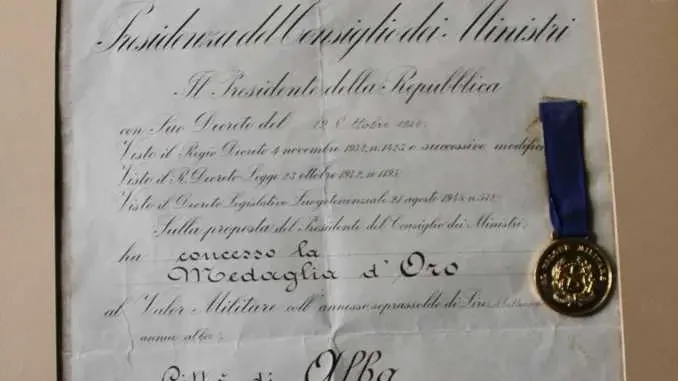 Presidenza del Consiglio dei Ministri
Il Presidente della Repubblica
con Suo Decreto del 12 Ottobre
Visto il Regio Decreto 4 novembre 1932, n. 1423 e successive modific
Visto il R. Decreto Legge 23 ottobre 1942, n. 1195
Visto il Decreto Legislativo Luogotenenziale 21 agosto 1945, n. 518
Sulla proposta del Presidente del Consiglio dei Ministri,
ha concesso la
Medaglia d'Oro
al Valor Militare coll' annesso soprassoldo di Lire
annue alla
Città di Alba